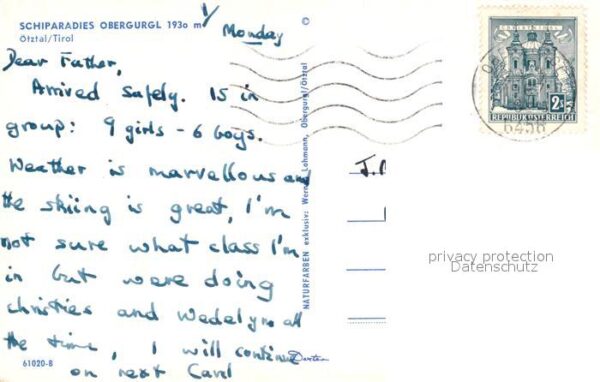 SCHIPARADIES OBERGURGL 1930 m
Ötztal/Tirol
1/ Monday
Dear Father,
Arrived safely. 15 in
group: 9 girls - 6 boys.
Weather is marvellous and
the skiing is great, I'm
not sure what class I'm
in but were doing
christies and Wedelyn all
the time, I will continue
on next Card
61020-8
©
NATURFARBEN exklusiv: Werner Lohmann, Obergurgl/Ötztal
2S
REPUBLIK ÖSTERREICH
6456
J.
privacy protection
Datenschutz